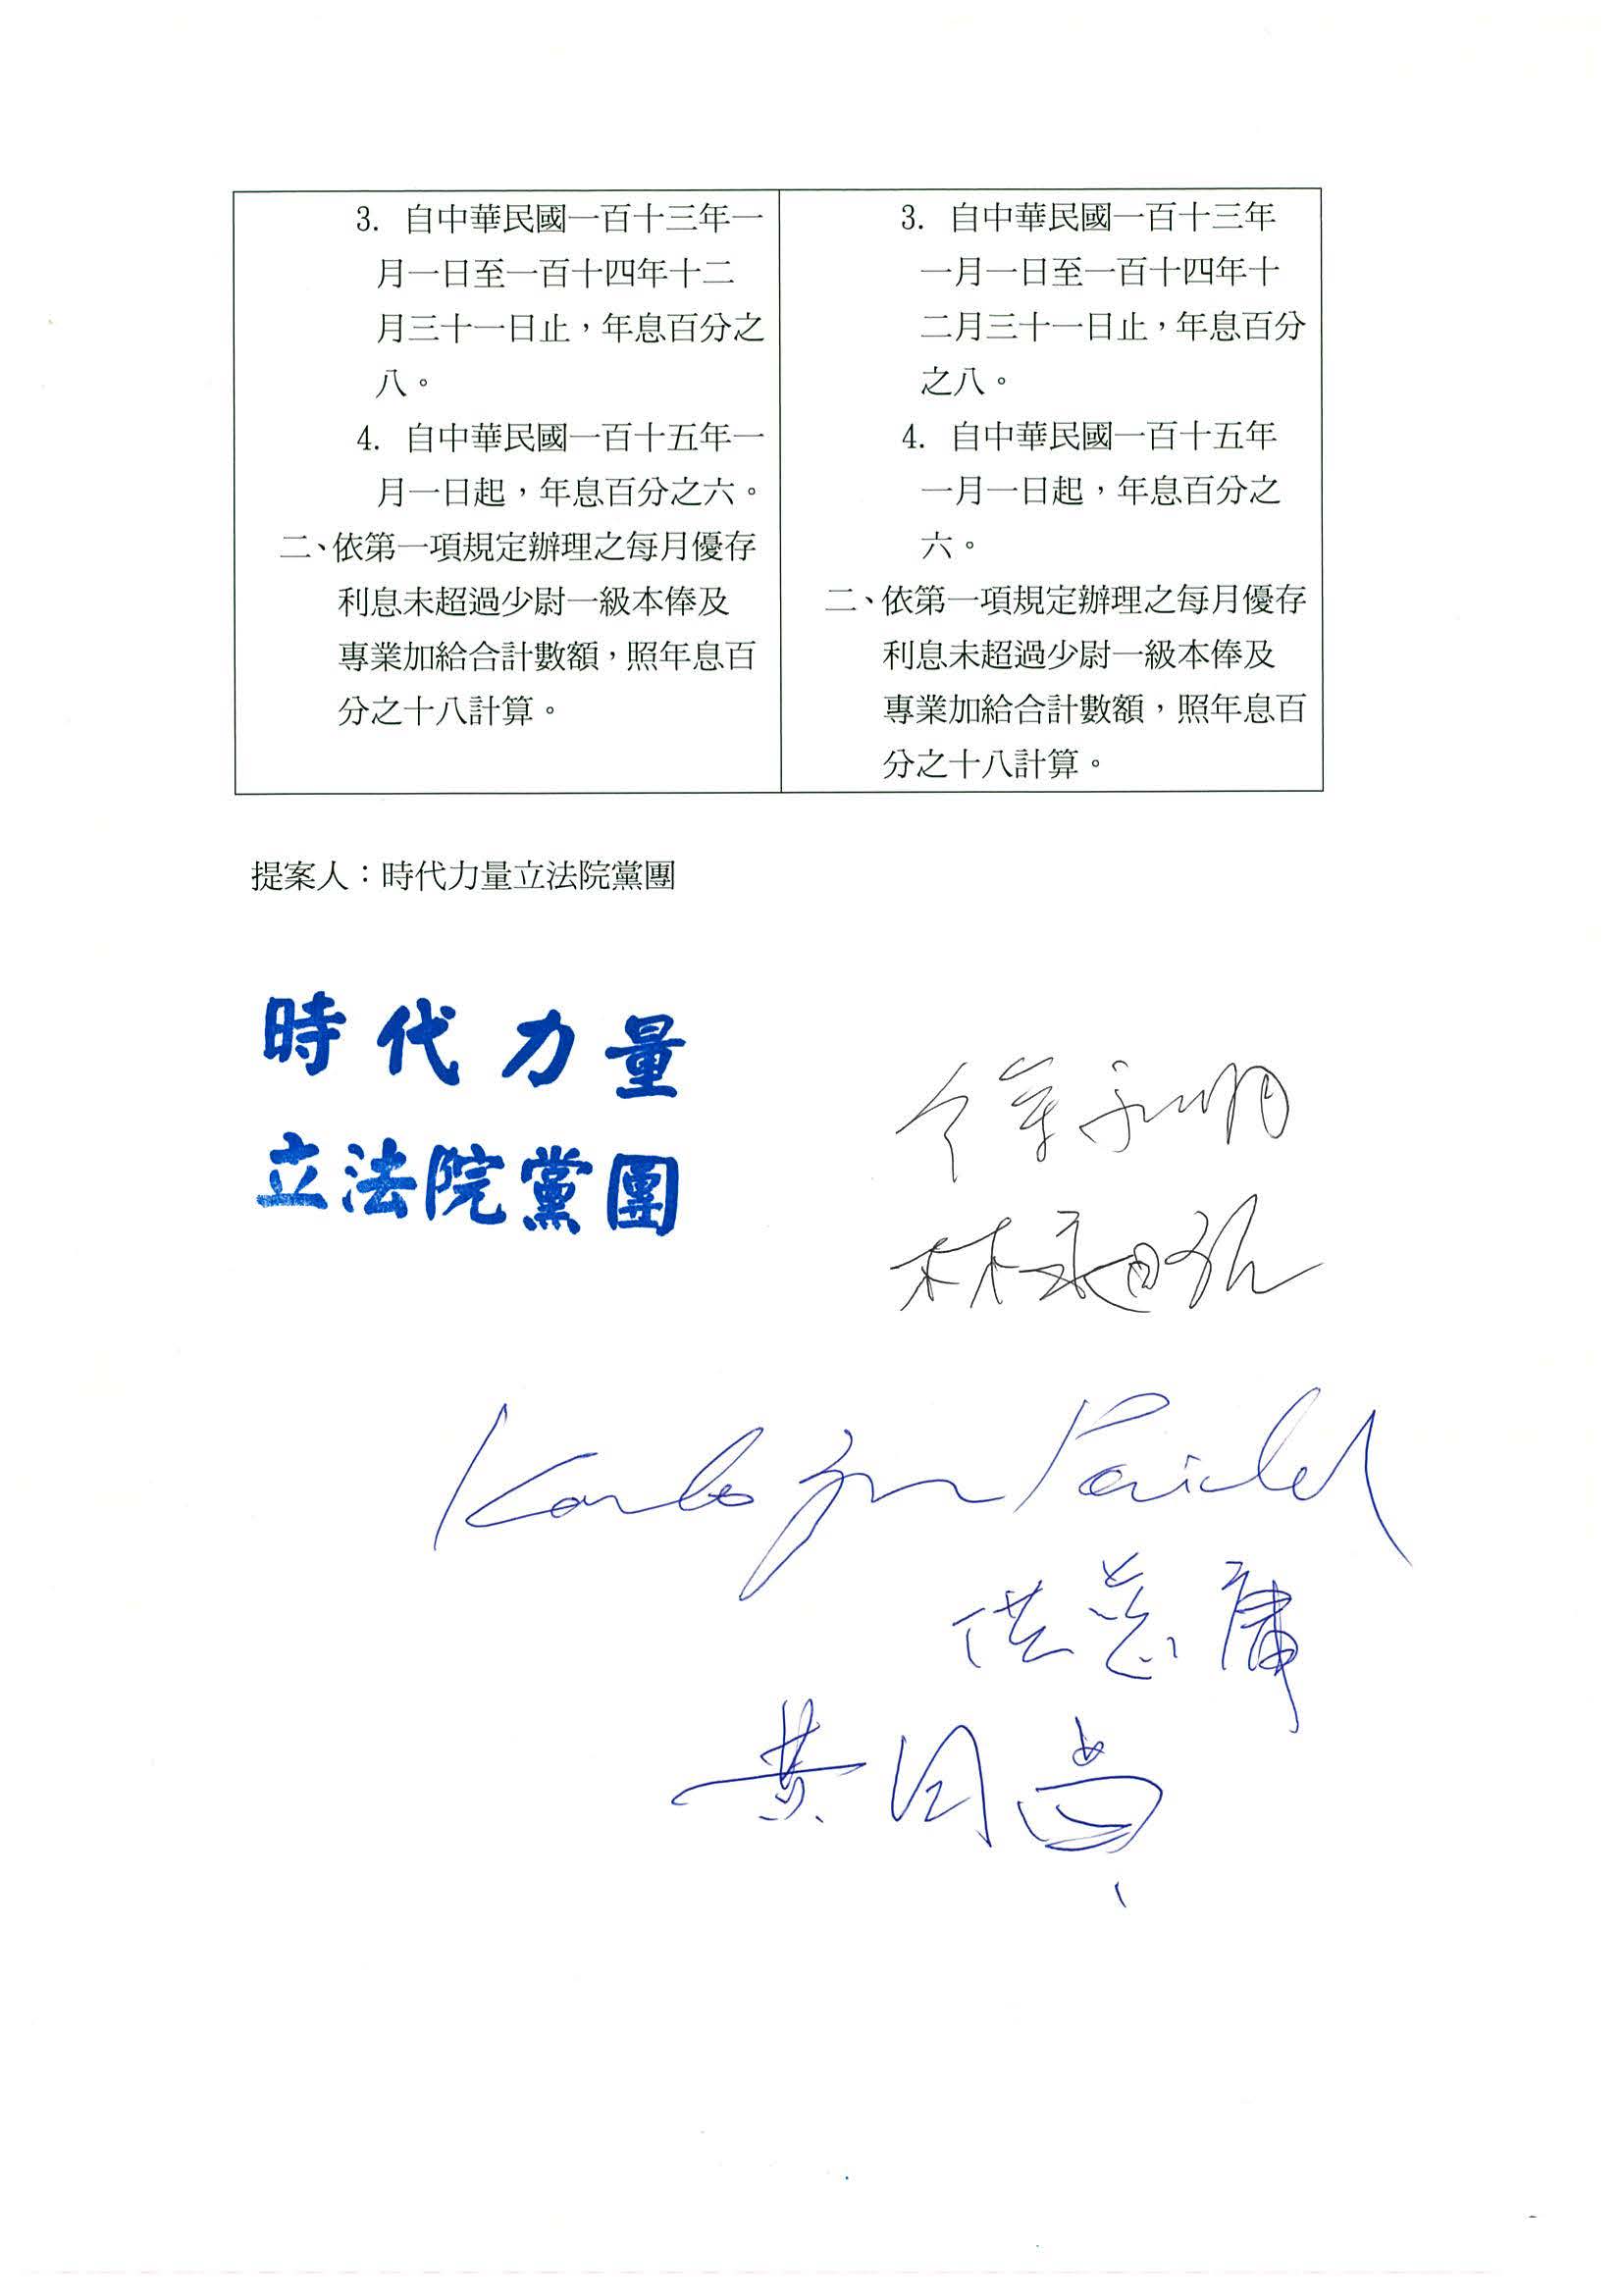 3. 自中華民國一百十三年一
月一日至一百十四年十二
月三十一日止，年息百分之
八。
4. 自中華民國一百十五年一
月一日起，年息百分之六。
二、依第一項規定辦理之每月優存
利息未超過少尉一級本俸及
專業加給合計數額，照年息百
分之十八計算。
3. 自中華民國一百十三年
一月一日至一百十四年十
二月三十一日止，年息百分
之八。
4. 自中華民國一百十五年
一月一日起，年息百分之
六。
二、依第一項規定辦理之每月優存
利息未超過少尉一級本俸及
專業加給合計數額，照年息百
分之十八計算。
提案人：時代力量立法院黨團
時代力量
立法院黨團
徐永明
林昶佐
洪慈庸
黃國昌